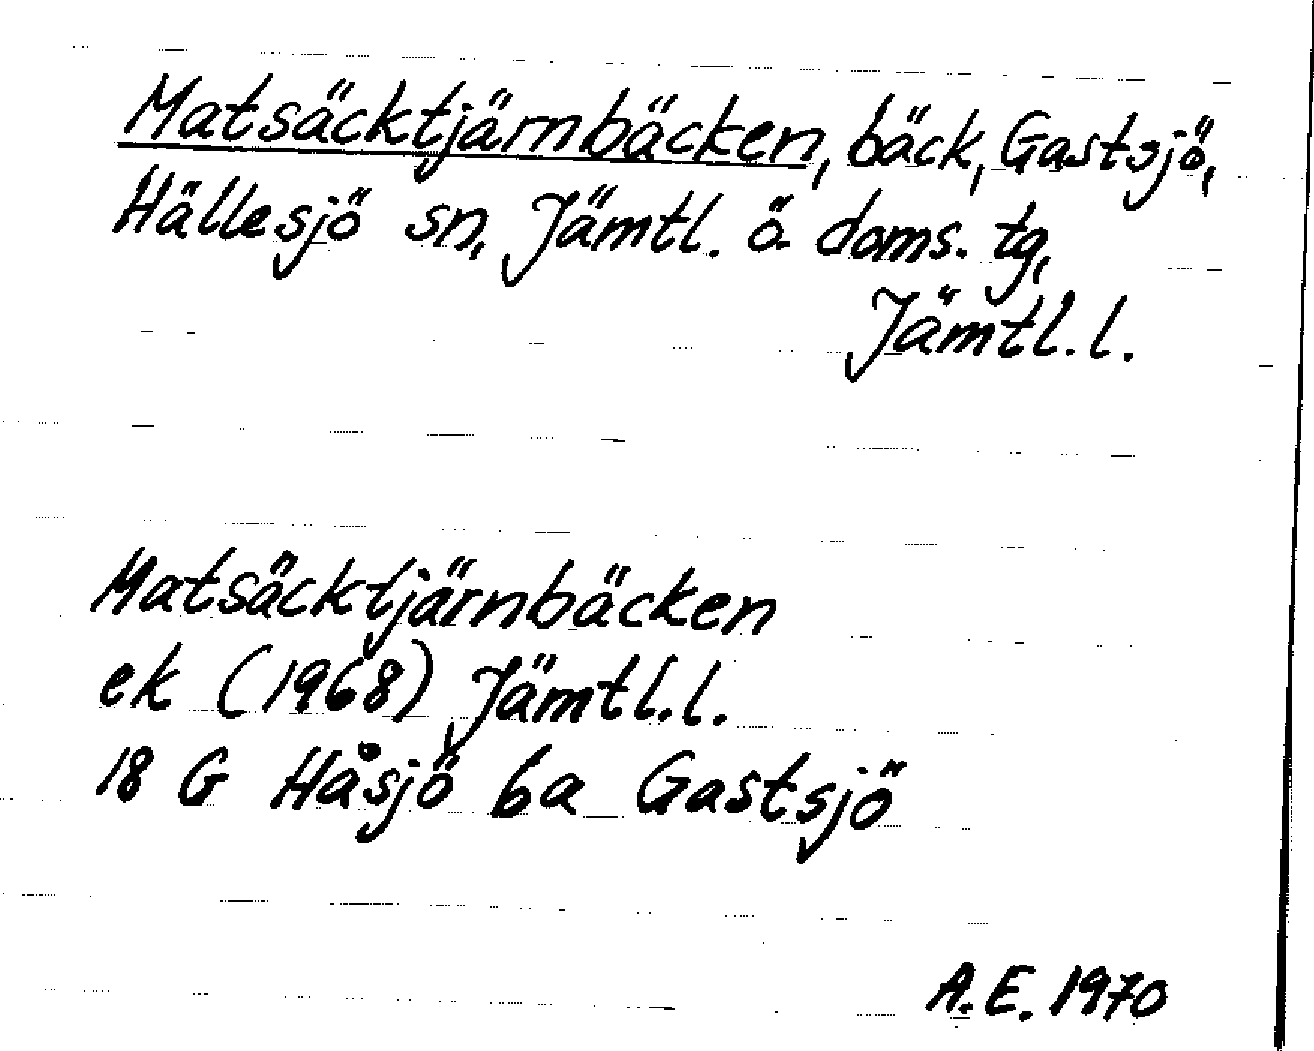 Matsäcktjärnbäcken, bäck, Gastsjö,
Hällesjö sn, Jämtl. ö. doms. tg,
Jämtl. l.
Matsäcktjärnbäcken
ek (1968) Jämtl. l.
18 G Håsjö ba Gastsjö
A.E. 1970